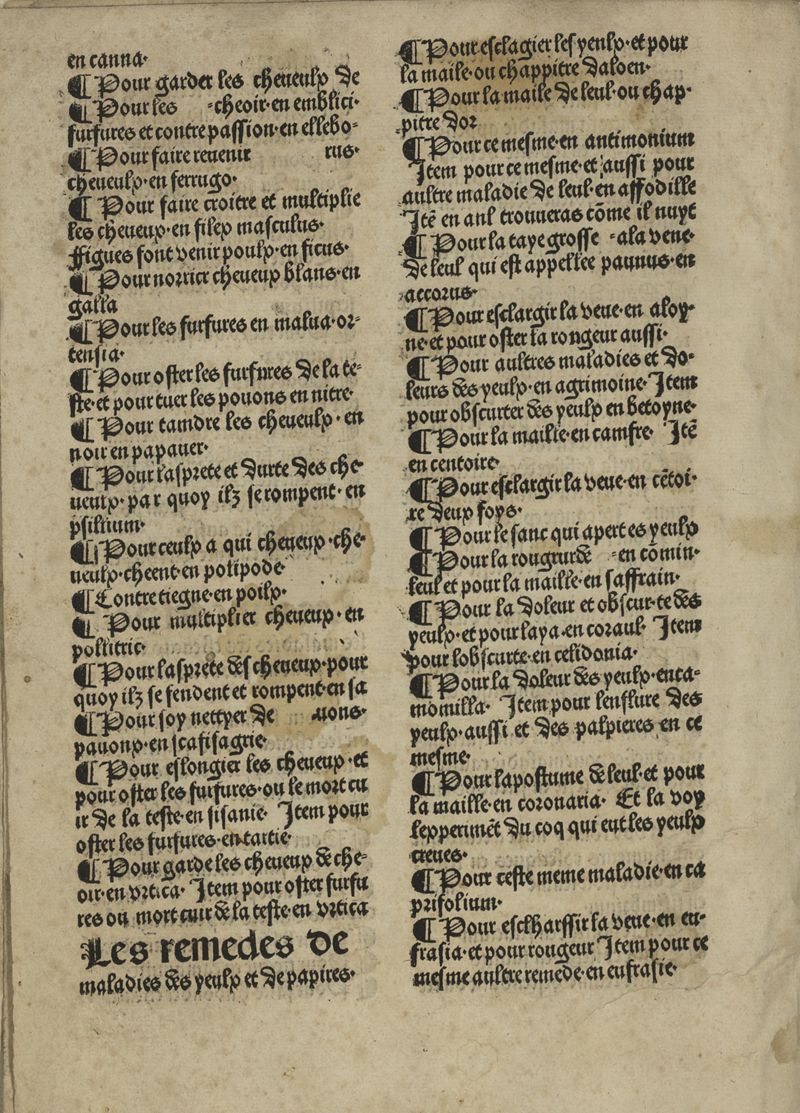 en canna·
¶ Pour garder les cheueulx de
¶ Pour les -cheoir·en emblici·
furfures et contre passion·en ellebo-
¶ Pour faire reuenir rus·
cheueulx·en ferrugo·
¶ Pour faire croitre et multiplie
les cheueux·en filex masculus·
ffigues font venir poulx·en ficus·
¶ Pour norricr cheueux blans·en
galla
¶ Pour les furfures en malua·or-
tensia·
¶ Pour oster les furfures de la te-
ste·et pour tuer les pouons en nitre·
¶ Pour taindre les cheueulx·en
noir en papauer·
¶ Pour lasprete et durte des che-
ueulx·par quoy ilz se rompent·en
psilium·
¶ Pour ceulx a qui cheueux·che-
ueulx·cheent·en polipode
¶ Contre tiegne·en poilx·
¶ Pour multiplier cheueux·en
pollitric·
¶ Pour lasprete des cheueux·pour
quoy ilz se fendent et rompent·en sa
¶ Pour soy nettyer de -uons·
pauonx·en scafisagrie·
¶ Pour eslongier les cheueux·et
pour oster les furfures·ou le mort cu
ir de la teste·en sisanie· Item pour
oster les furfures·en tartie·
¶ Pour garde les cheueux de che-
oir·en vrtica· Item pour oster furfu
res ou mort cuir de la teste·en vrtica
Les remedes de
maladies des yeulx et de papires·
¶ Pour esclagier les yeulx·et pour
la maile·ou chappitre daloen·
¶ Pour la maile de leul·ou chap-
pitre dor
¶ Pour ce mesme·en antimonium
Item pour ce mesme·et aussi pour
aultre maladie de leul·en affodille
Itē en anl trouueras cōme il nuyt
¶ Pour la taye grosse -ala vene·
de leul qui est appellee pannus·en
accorus·
¶ Pour esclargir la veue·en aloy-
ne·et pour oster la rongeur aussi·
¶ Pour aultres maladies et do-
leurs des yeulx·en agrimoine· Item
pour obscurter des yeulx en betoyne·
¶ Pour la maille·en camfre· Itē
en centoire·
¶ Pour esclargir la veue·en cētoi-
re deux foys·
¶ Pour le sanc qui apert es yeulx
¶ Pour la rougrur de -en cōmin·
leul et pour la maille·en saffrain·
¶ Pour la doleur et obscur·te des
yeulx·et pour laya·en coraul· Item
pour lobscurte·en celidonia·
¶ Pour la doleur des yeulx·en ca-
momilla· Item pour lenflure des
yeulx·aussi et des palpieres en ce
mesme·
¶ Pour lapostume de leul·et pour
la maille·en coronaria· Et la voy
lexperimēt du coq qui eut les yeulx
creues·
¶ Pour ceste meme maladie·en ca
prifolium·
¶ Pour esclharssir la veue·en eu-
frasia·et pour rougeur Item pour ce
mesme aultre remede·en eufrasie·